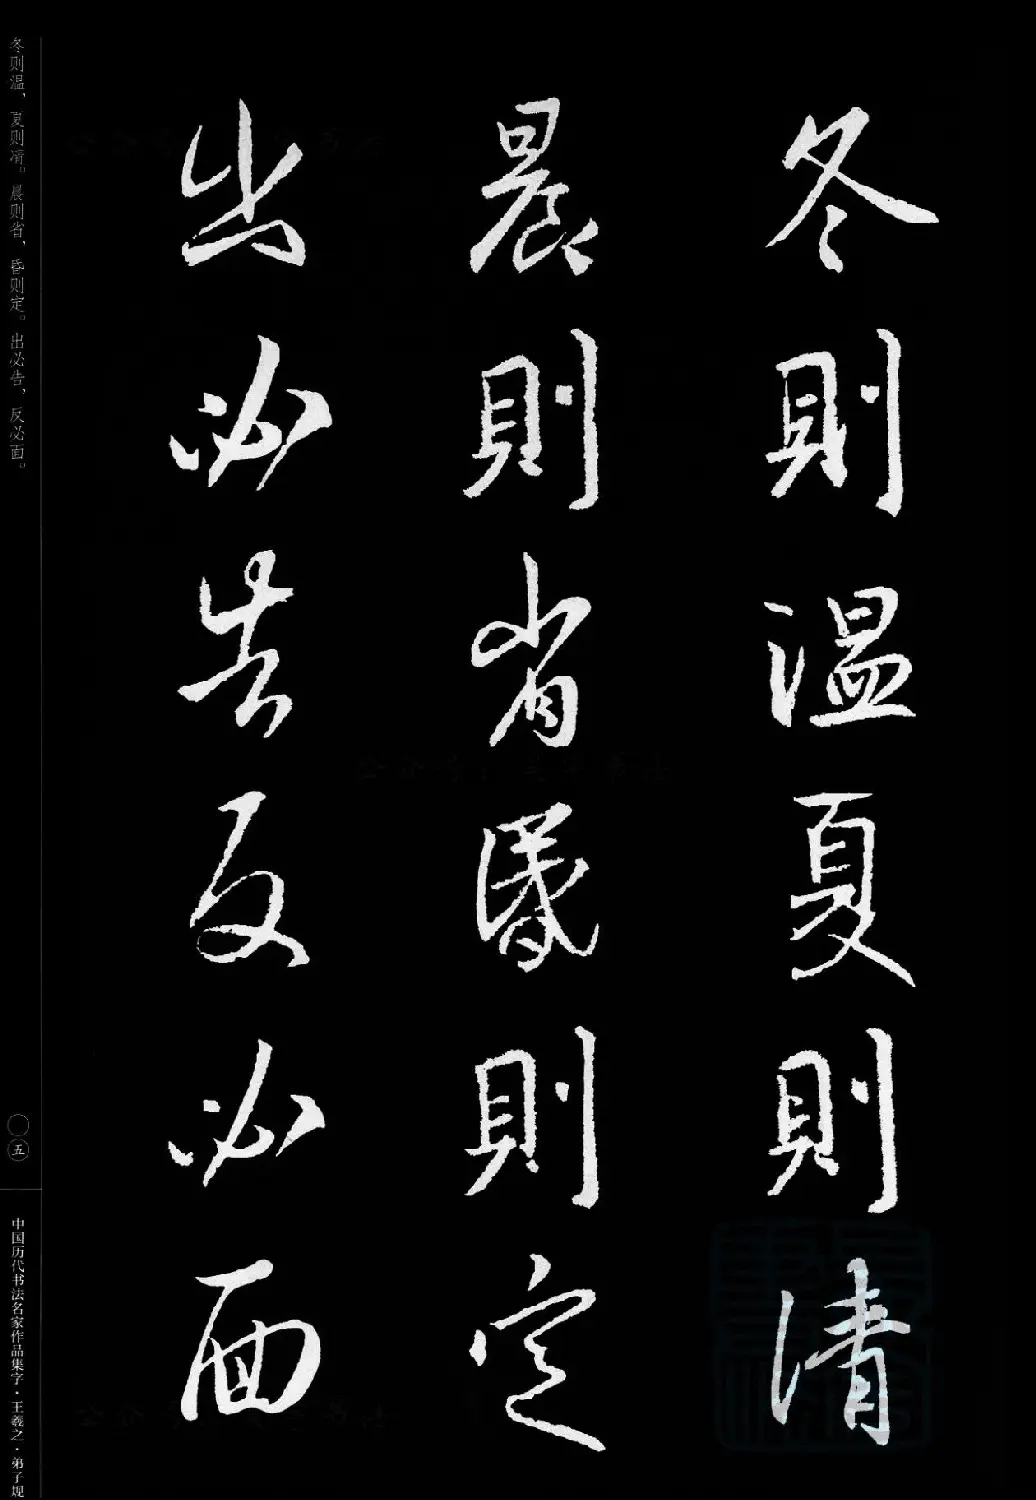 冬則溫夏則清
晨則省昬則定
出必告反必面
冬则温，夏则凊。晨则省，昏则定。出必告，反必面。
〇五
中国历代书法名家作品集字·王羲之·弟子规